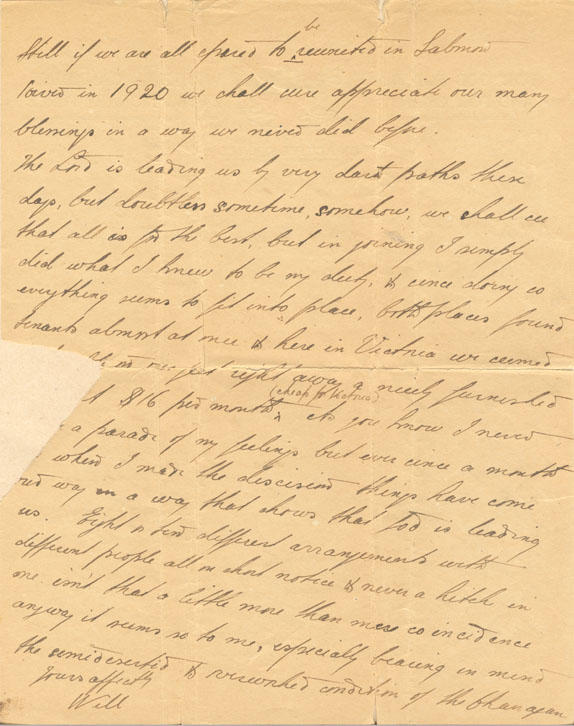 be
Still if we are all spared to ^ reunited in Salmon
River in 1920 we shall sure appreciate our many
blessings in a way we never did before.
The Lord is leading us by very dark paths these
days, but doubtless sometime, somehow, we shall see
that all is for the best, but in joining I simply
did what I knew to be my duty, & since doing so
everything seems to fit into place, both places found
tenants almost at once & here in Victoria we seemed
one just right away a nicely furnished
(cheap for Victoria)
at $16 per month ^ As you know I never
a parade of my feelings but ever since a month
when I made the decision things have come
our way in a way that shows that God is leading
us. Eight or ten different arrangements with
different people all on short notice & never a hitch in
one. isn't that a little more than mere coincidence
anyway it seems so to me, especially bearing in mind
the semideserted & condition of the Okanagan
Yours affectly
Will